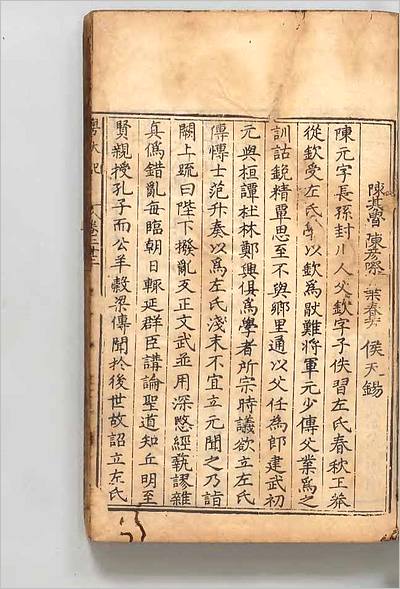 陳其魯 陳彥 葉春 侯天錫
陳元字長孫封川人父欽字子佚習左氏春秋王莽
從欽受左氏以欽為猒難將軍元少傳父業為之
訓詁銳精覃思至不與鄉里通以父任為郎建武初
元與桓譚杜林鄭興俱為學者所宗時議欲立左氏
傳愽士范升奏以為左氏淺末不宜立元聞之乃詣
闕上疏曰陛下撥亂反正文武並用深愍經藝謬雜
真偽錯亂每臨朝日輒延群臣講論聖道知丘明至
賢親授孔子而公羊穀梁傳聞於後世故詔立左氏
粵大記
卷二十三